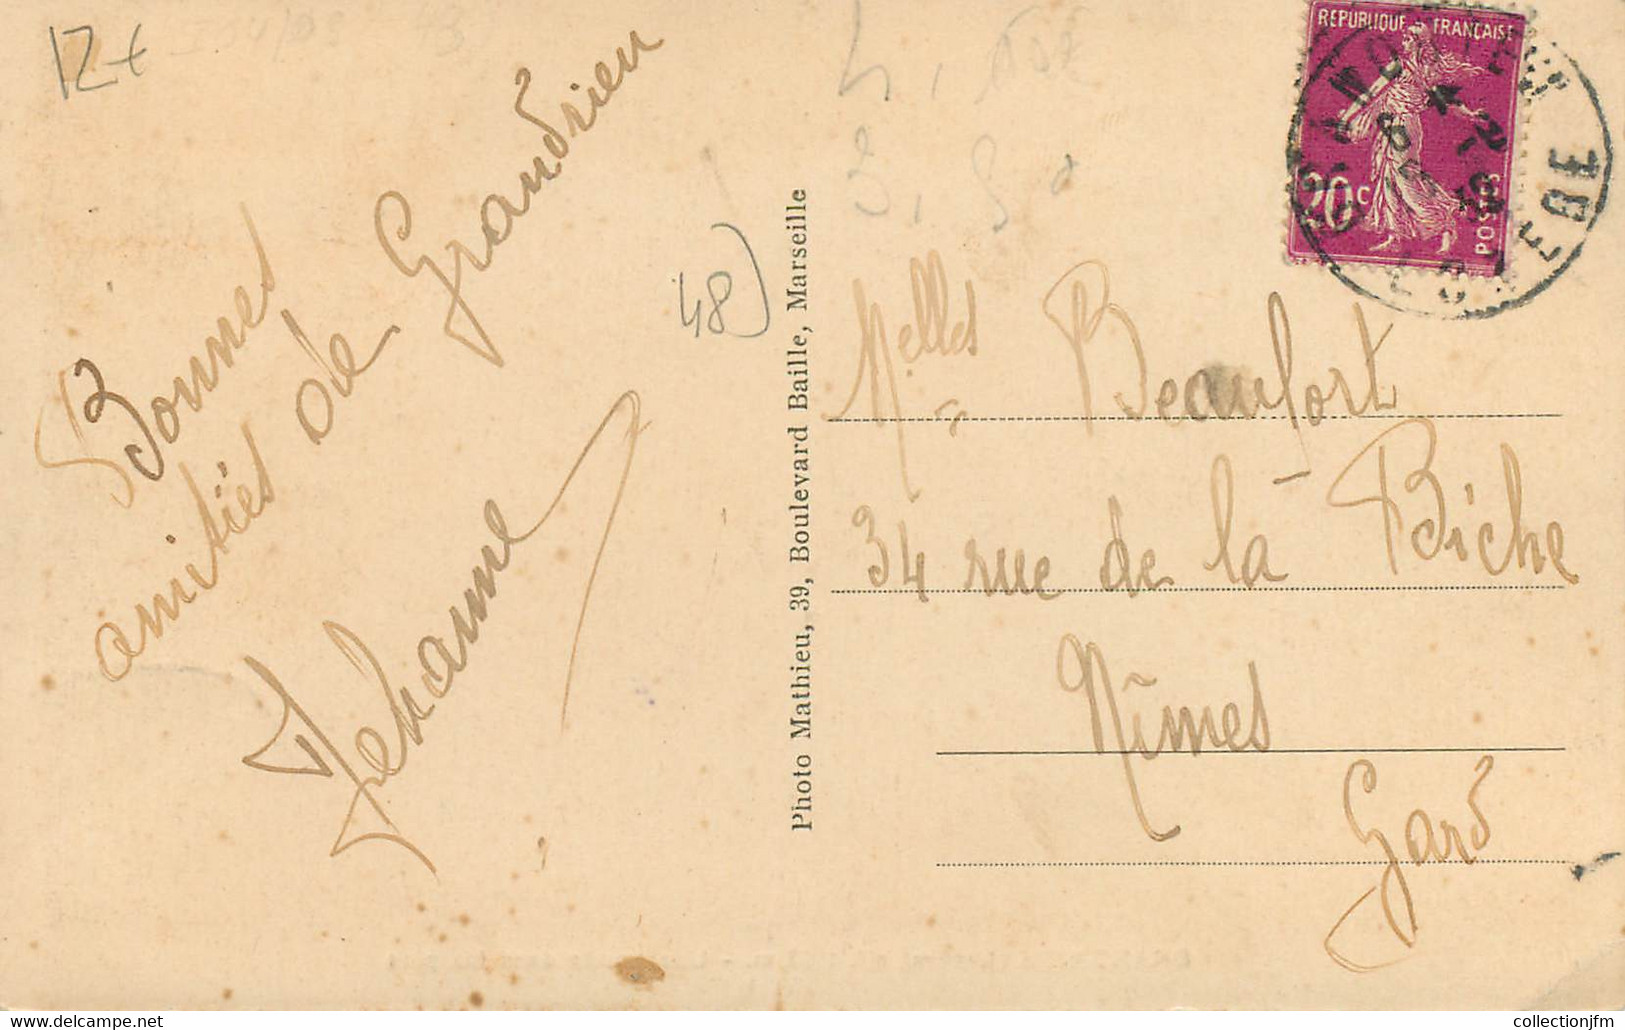 12€
Bonnes
amitiés de Grandrieu
Jehanne
48)
Photo Mathieu, 39, Boulevard Baille, Marseille
REPUBLIQUE FRANÇAISE
20c
POSTES
LOZERE
Melles Beaufort
34 rue de la Biche
Nîmes
Gard
collectionjfm